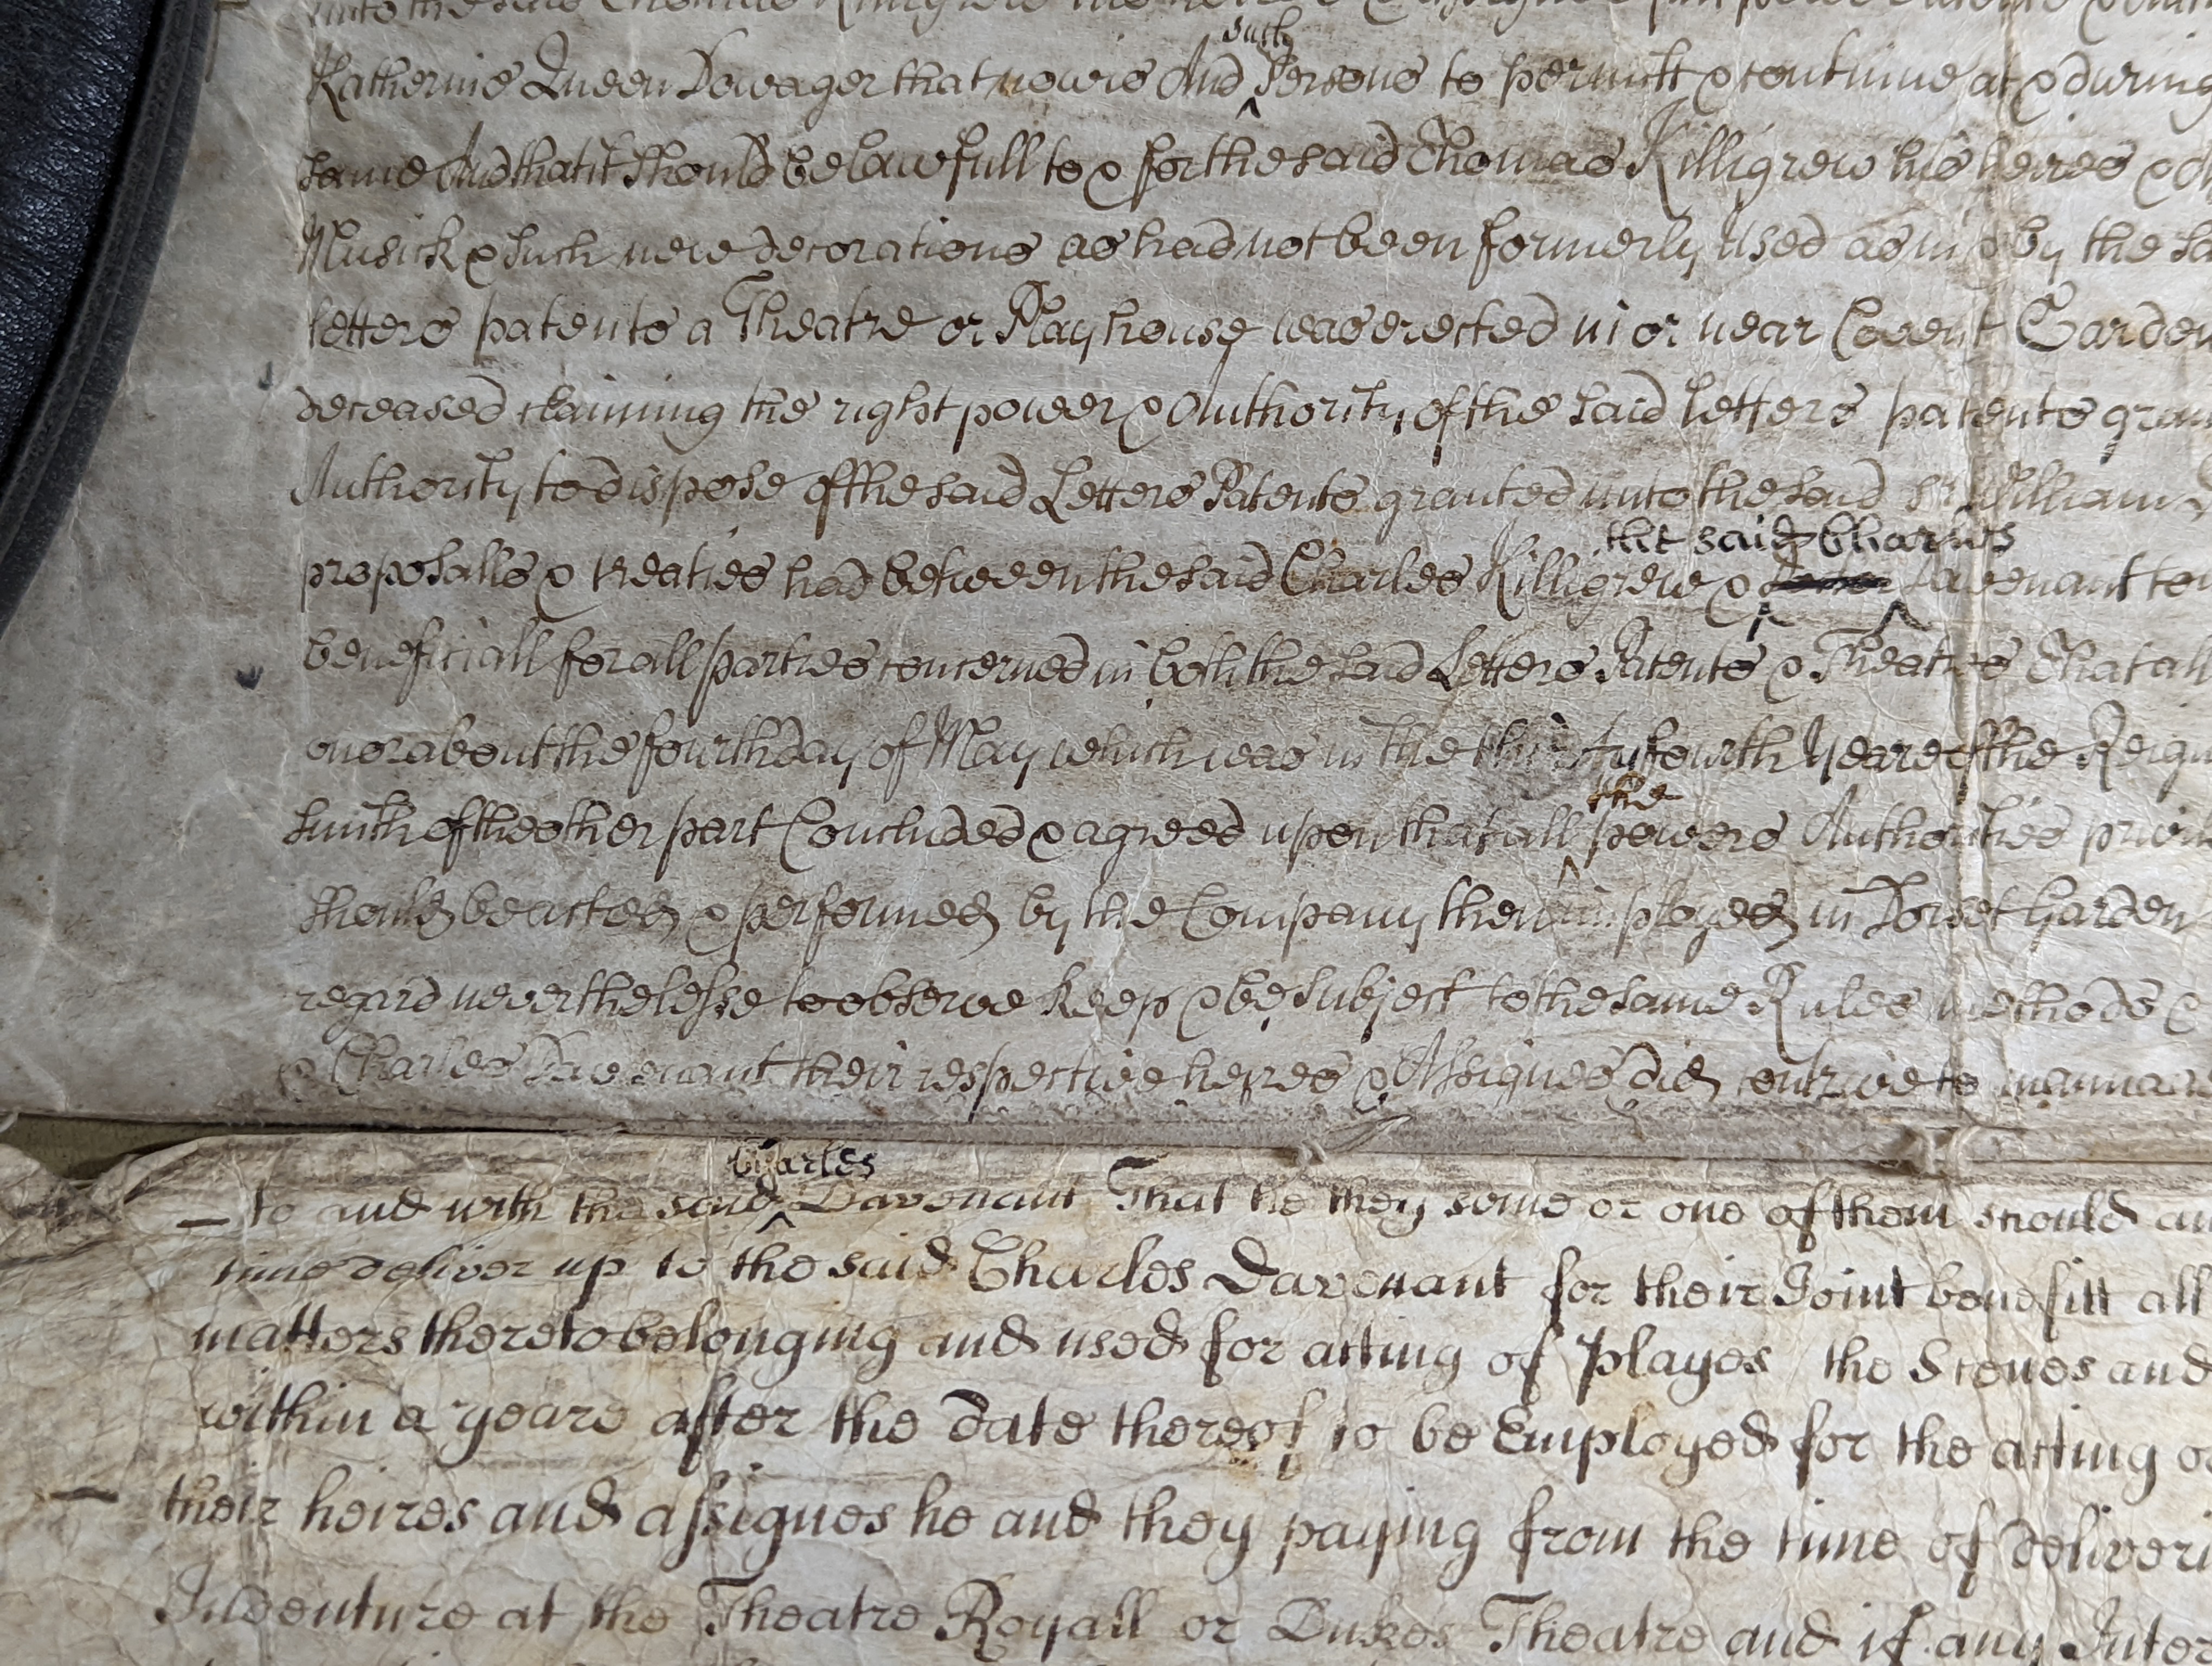 unto the said Thomas Killigrew his heires & Assignes full power
such
Katherine Queen Dowager that now is And ^ Persons to permitt & continue at & during
same And that it should be lawfull to & for the said Thomas Killigrew his heires &
Musick & such new decorations as had not been formerly Used as in & by the
letters patents a Theatre or Playhouse was erected in or near Covent Garden
deceased claiming the right power & Authority of the said letters patents
Authority to dispose of the said Letters Patents granted unto the said Sr. William
the said Charles
proposalls & treaties had between the said Charles Killigrew & Davenant
beneficiall for all parties concerned in both the said Letters Patents & Theatres That all
on or about the fourth day of May which was in the fourth Yeare of the Reign
the
Smith of the other part Concluded & agreed upon that all ^ powers Authorities
should be acted & performed by the Company then imployed in Dorset Garden
regard neverthelesse to observe keep & be subject to the same Rules methods &
& Charles Davenant their respective heires & Assignes did
Charles
to and with the said ^ Davenant That he they some or one of them should
time deliver up to the said Charles Davenant for their Joint benefitt all
matters thereto belonging and used for acting of Playes the Scenes and
within a yeare after the date thereof to be Employed for the acting
their heires and assignes he and they paying from the time of
Indenture at the Theatre Royall or Dukes Theatre and if any